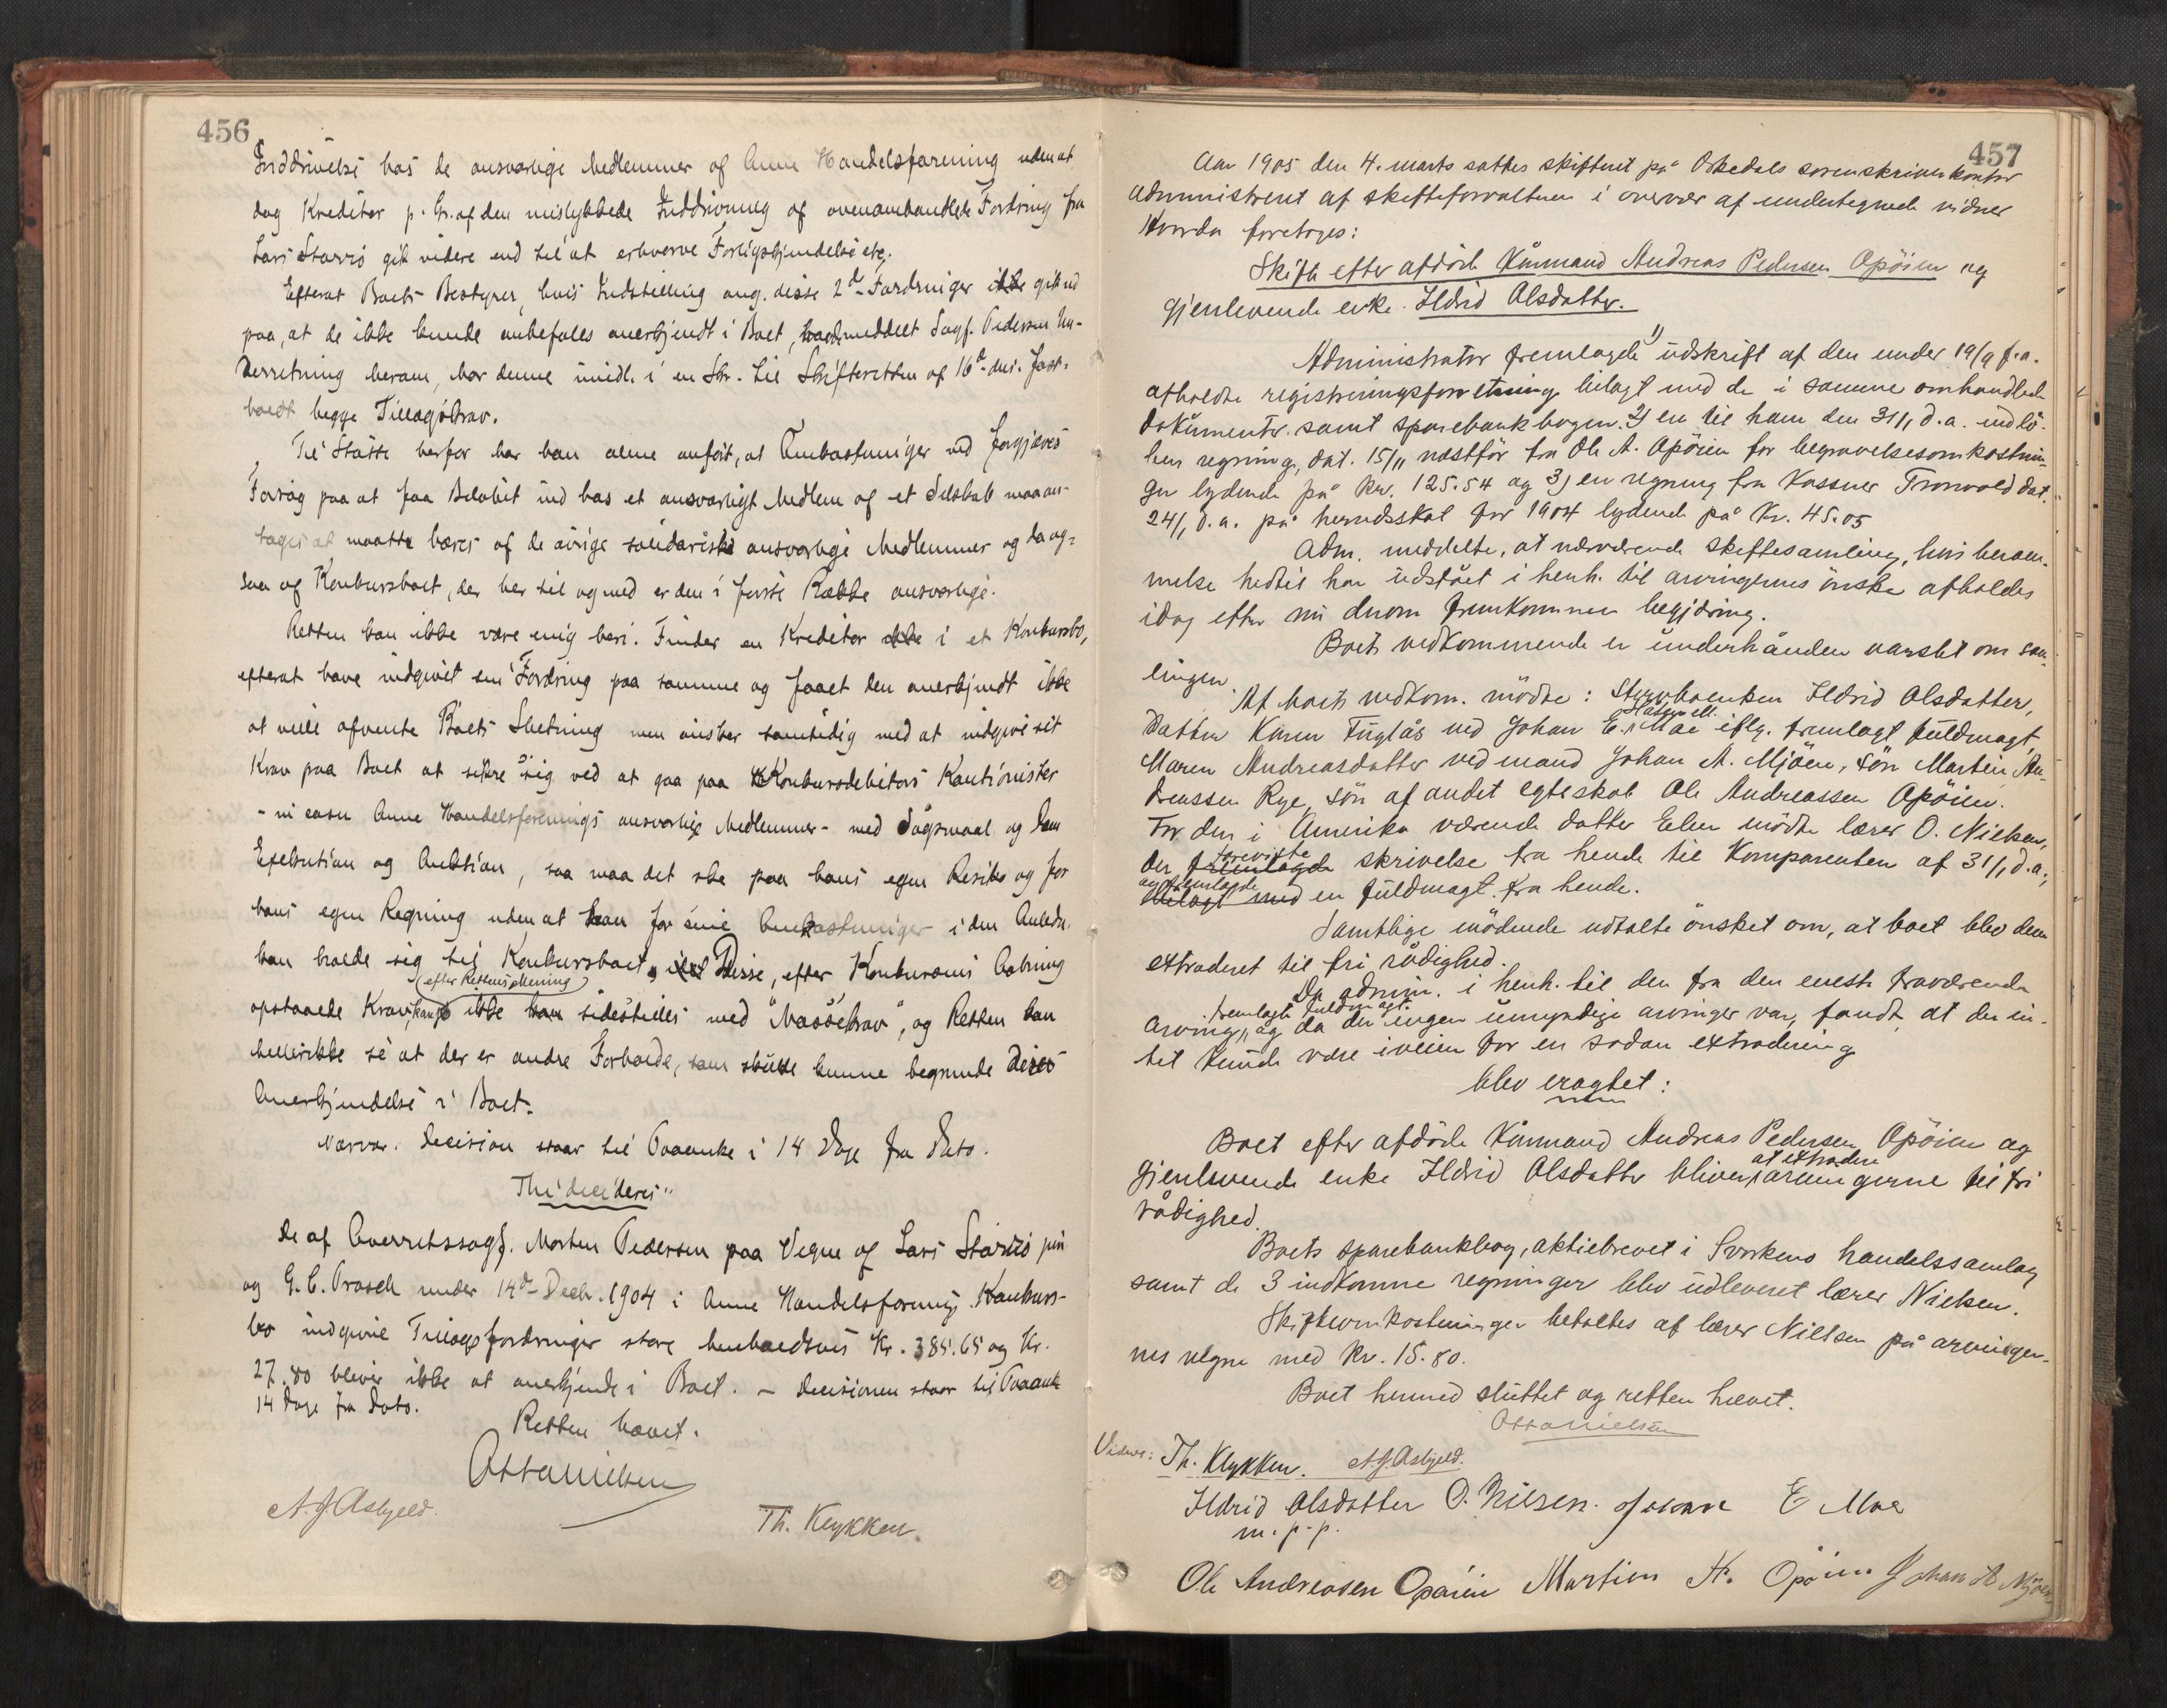 456
Inddrivelse hos de ansvarlige Medlemmer af Anne Handelsforening uden at
dog Kreditor p. Gr. af den mislykkede Inddrivning af ovenomhandlede Fordring fra
Lars Storvis gik videre end til at erhverve Forligskjendelse etc.
Efterat Boets Bestyrer, hvis Indstilling ang. disse 2de Fordringer gik ud
paa, at de ikke kunde anbefales anerkjendt i Boet, havde meddelt Sagf. Pedersen Un-
derretning herom, har denne imidl. i en Skr. til Skifteretten af 16de ds. fast-
holdt begge Tillægskrav.
Til Støtte herfor har han alene anført, at Omkostninger ved forgjæves
Forsøg paa at faa Beløbet ind hos et ansvarligt Medlem af et Selskab maa an-
tages at maatte bæres af de øvrige solidariske ansvarlige Medlemmer og da og-
saa af Konkursboet, der her til og med er den i første Række ansvarlige.
Retten kan ikke være enig heri. Finder en Kreditor i et Konkursbo,
efterat have indgivet en Fordring paa samme og faaet den anerkjendt ikke
at ville afvente Boets Slutning men ønsker samtidig med at indgive sit
Krav paa Boet at sikre sig ved at gaa paa Konkursdebitors Kautionister
- in casu Anne Handelsforenings ansvarlige Medlemmer - med Søgsmaal og Dom
Exekution og Auktion, saa maa det ske paa hans egen Risiko og for
hans egen Regning uden at han for sine Omkostninger i den Anledn.
kan holde sig til Konkursboet, Disse, efter Konkursens Aabning
(efter Rettens Mening)
opstaaede Krav, kan ikke sidestilles med "Massekrav", og Retten kan
heller ikke se at der er andre Forholde, som skulde kunne begrunde deres
Anerkjendelse i Boet.
Nærvær. Decision staar til Paaanke i 14 Dage fra Dato.
Thi decideres:
De af Overretssagf. Morten Pedersen paa Vegne af Lars Storvis jun
og G. C. Prasch under 14de Decbr. 1904 i Anne Handelsforenings Konkurs-
bo indgivne Tillægsfordringer store henholdsvis Kr. 385.65 og Kr.
27.80 bliver ikke at anerkjende i Boet. - Decisionen staar til Paaanke
14 Dage fra Dato.
Retten hævet.
Otto Nielsen
A. J. Asbjeld.
Th. Klykken.
457
Aar 1905 den 4. marts sattes skifteret på Orkedals sorenskriverkontor
administreret af skifteforvalteren i overvær af undertegnede vidner
Hvorda foretoges:
Skifte efter afdöde Kårmand Andreas Pedersen Opöien og
gjenlevende enke Ildrid Olsdatter.
Administrator fremlagde 1) udskrift af den under 19/9 f.a.
afholdte registreringsforretning bilagt med de i samme omhandlede
dokumenter samt sparebankbogen. 2) en til ham den 31/1 d.a. indlö-
ben regning, dat. 15/11 næstför fra Ole A. Opöien for begravelsesomkostnin-
ger lydende på kr. 125.54 og 3) en regning fra Kasserer Tronvold dat.
24/1 d.a. på herredsskat for 1904 lydende på Kr. 45.05
Adm. meddelte, at nærværende skiftesamling, hvis beram-
melse hidtil har udstået i henh. til arvingernes önske afholdes
idag efter nu derom fremkommen begjæring.
Boets vedkommende er underhånden varslet om sam-
lingen.
Af boets vedkom. mödte: Styrvboenken Ildrid Olsdatter,
Datter Karen Fuglås ved Johan E. Moe iflg. fremlagt fuldmagt,
Maren Andreasdatter ved mand Johan A. Mjöen, sön Martin An-
dreassen Rye, sön af andet egteskab Ole Andreassen Opöien.
For den i Amerika værende datter Elen mödte lærer O. Nielsen,
foreviste
der fremlagde skrivelse fra hende til Komparenten af 31/1 d.a.,
og fremlagde
bilagt med en fuldmagt fra hende.
Samtlige mödende udtalte önsket om, at boet blev dem
extraderet til fri rådighed.
Da admin. i henh. til den fra den eneste fraværende
fremlagte fuldmagt
arving, og da der ingen umyndige arvinger var, fandt at der in-
tet kunde være iveien for en sådan extradering
blev eragtet:
Boet efter afdöde Kårmand Andreas Pedersen Opöien og
at extradere
gjenlevende enke Ildrid Olsdatter bliver arvingerne til fri
rådighed.
Boets sparebankbog, aktiebrevet i Svorkmo handelssamlag
samt de 3 indkomne regninger blev udleveret lærer Nielsen.
Skifteomkostninger betaltes af lærer Nielsen på arvinger-
nes vegne med kr. 15.80.
Boet hermed sluttet og retten hævet.
Otto Nielsen
Vidner: Th. Klykken. A. J. Asbjeld.
Ildrid Olsdatter O. Nilsen. Johan E Moe
m. p. p.
Ole Andreasen Opöien Martin A. Opöien Johan A Mjöen